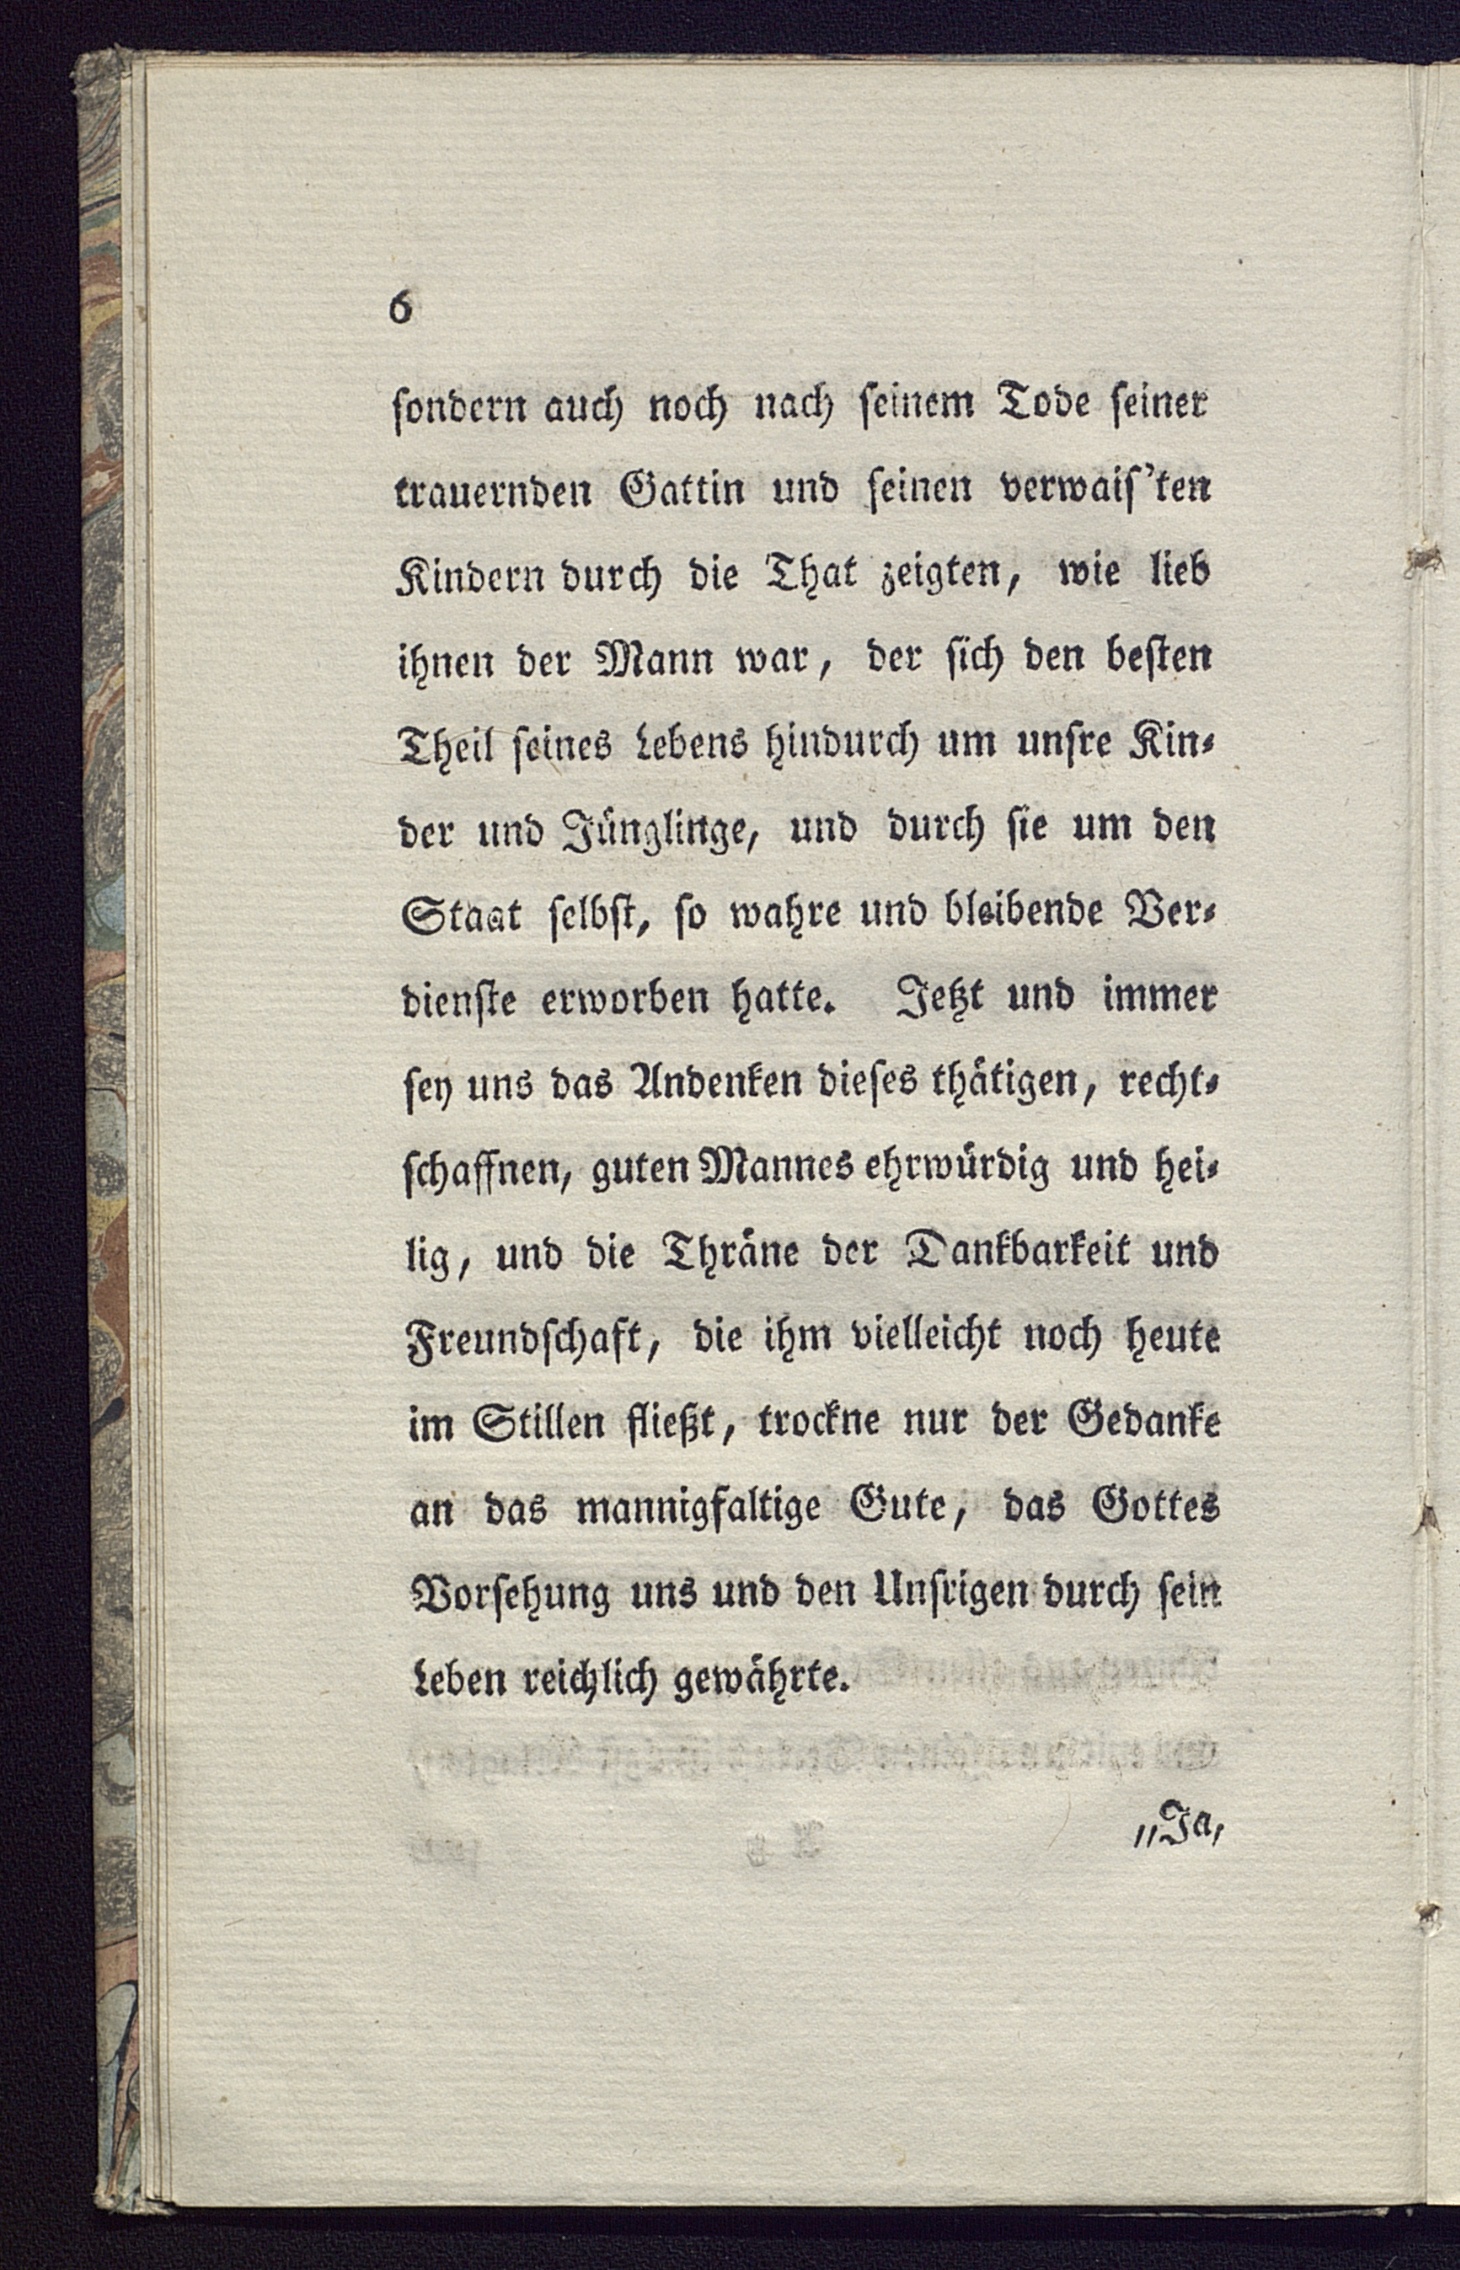 6
ſondern auch noch nach ſeinem Tode ſeiner
trauernden Gattin und ſeinen verwaiſ’ten
Kindern durch die That zeigten, wie lieb
ihnen der Mann war, der ſich den beſten
Theil ſeines Lebens hindurch um unſre Kin⸗
der und Jünglinge, und durch ſie um den
Staat ſelbſt, ſo wahre und bleibende Ver⸗
dienſte erworben hatte. Jetzt und immer
ſey uns das Andenken dieſes thätigen, recht⸗
ſchaffnen, guten Mannes ehrwürdig und hei⸗
lig, und die Thräne der Dankbarkeit und
Freundſchaft, die ihm vielleicht noch heute
im Stillen fließt, trockne nur der Gedanke
an das mannigfaltige Gute, das Gottes
Vorſehung uns und den Unſrigen durch ſein
Leben reichlich gewährte.
„Ja,